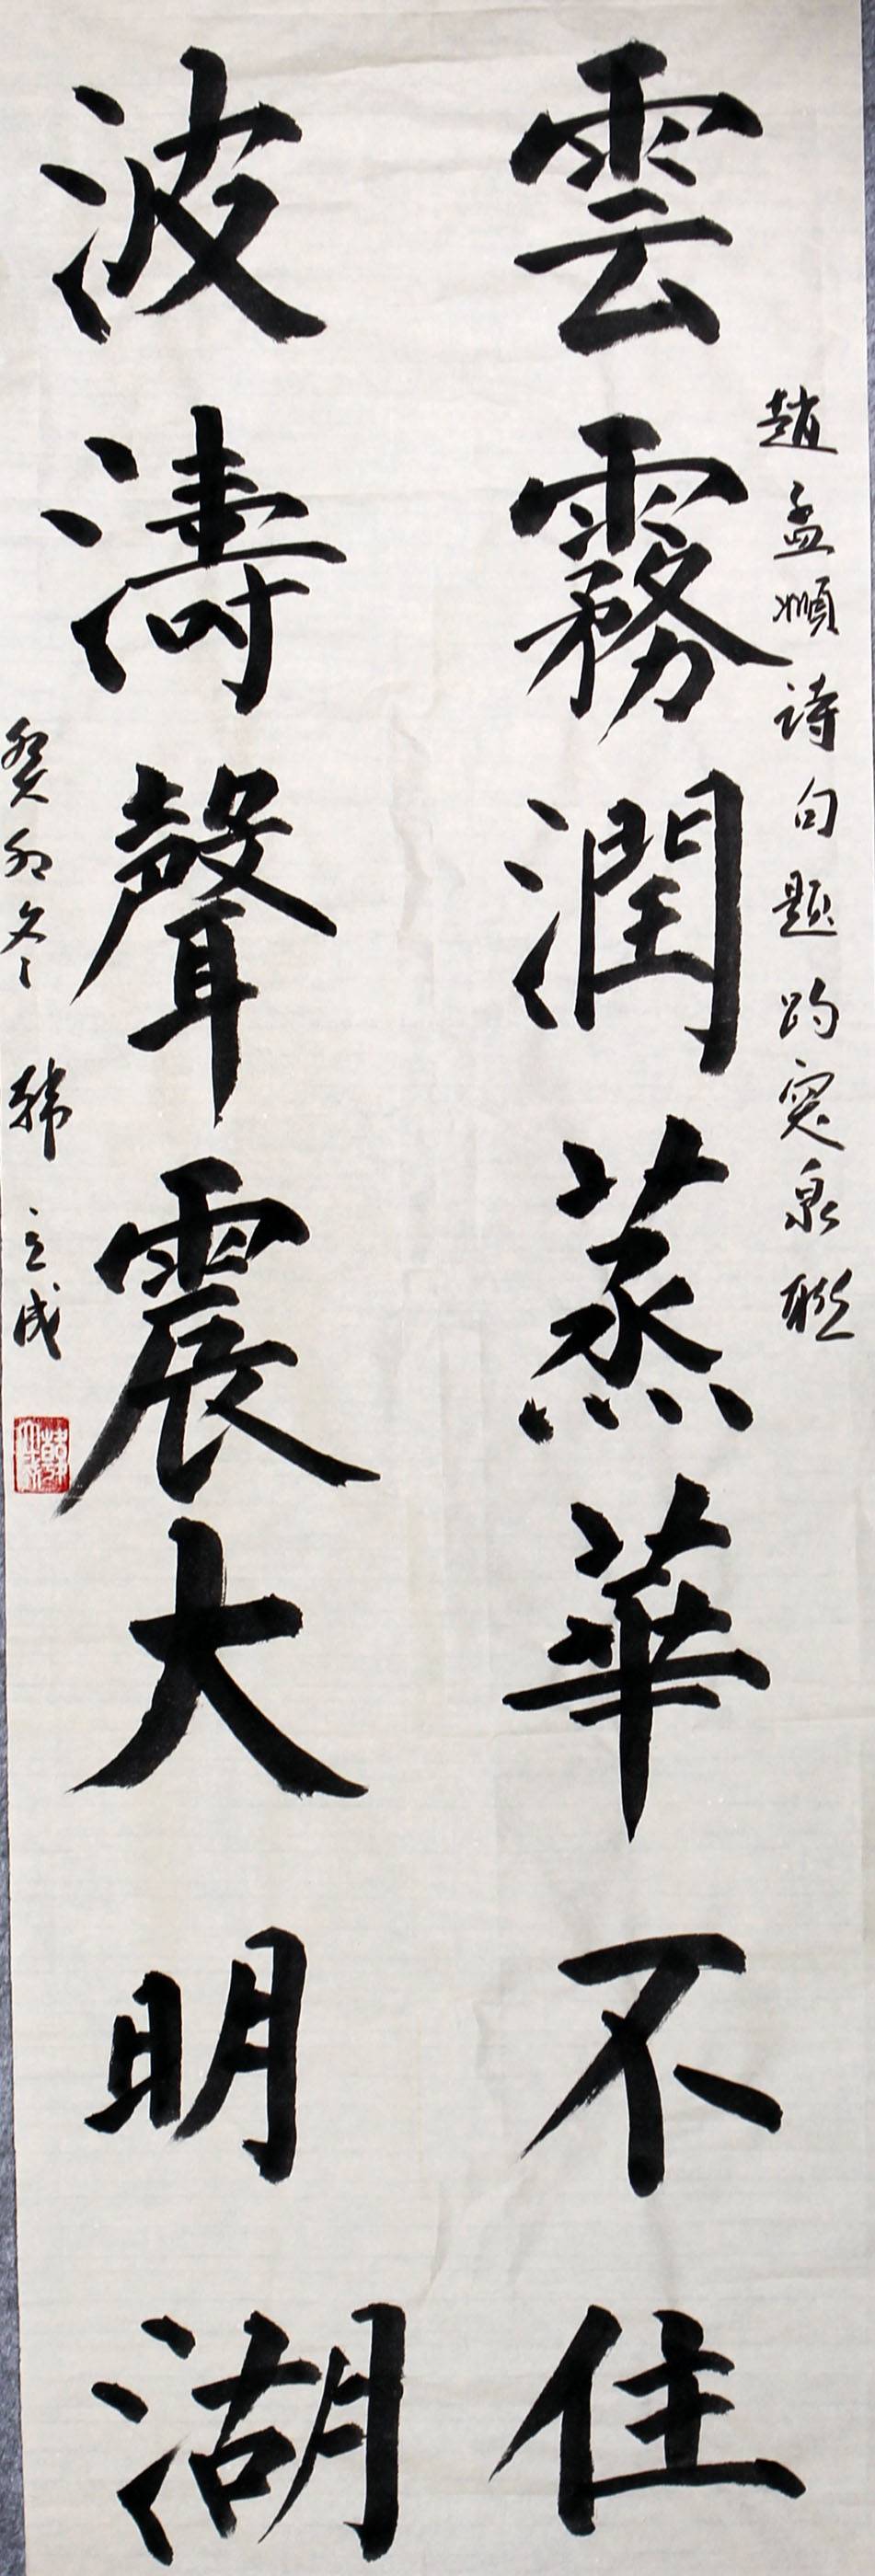 趙孟順诗句题趵突泉联
雲霧潤蒸華不住
波濤聲震大明湖
癸卯冬 韩立成